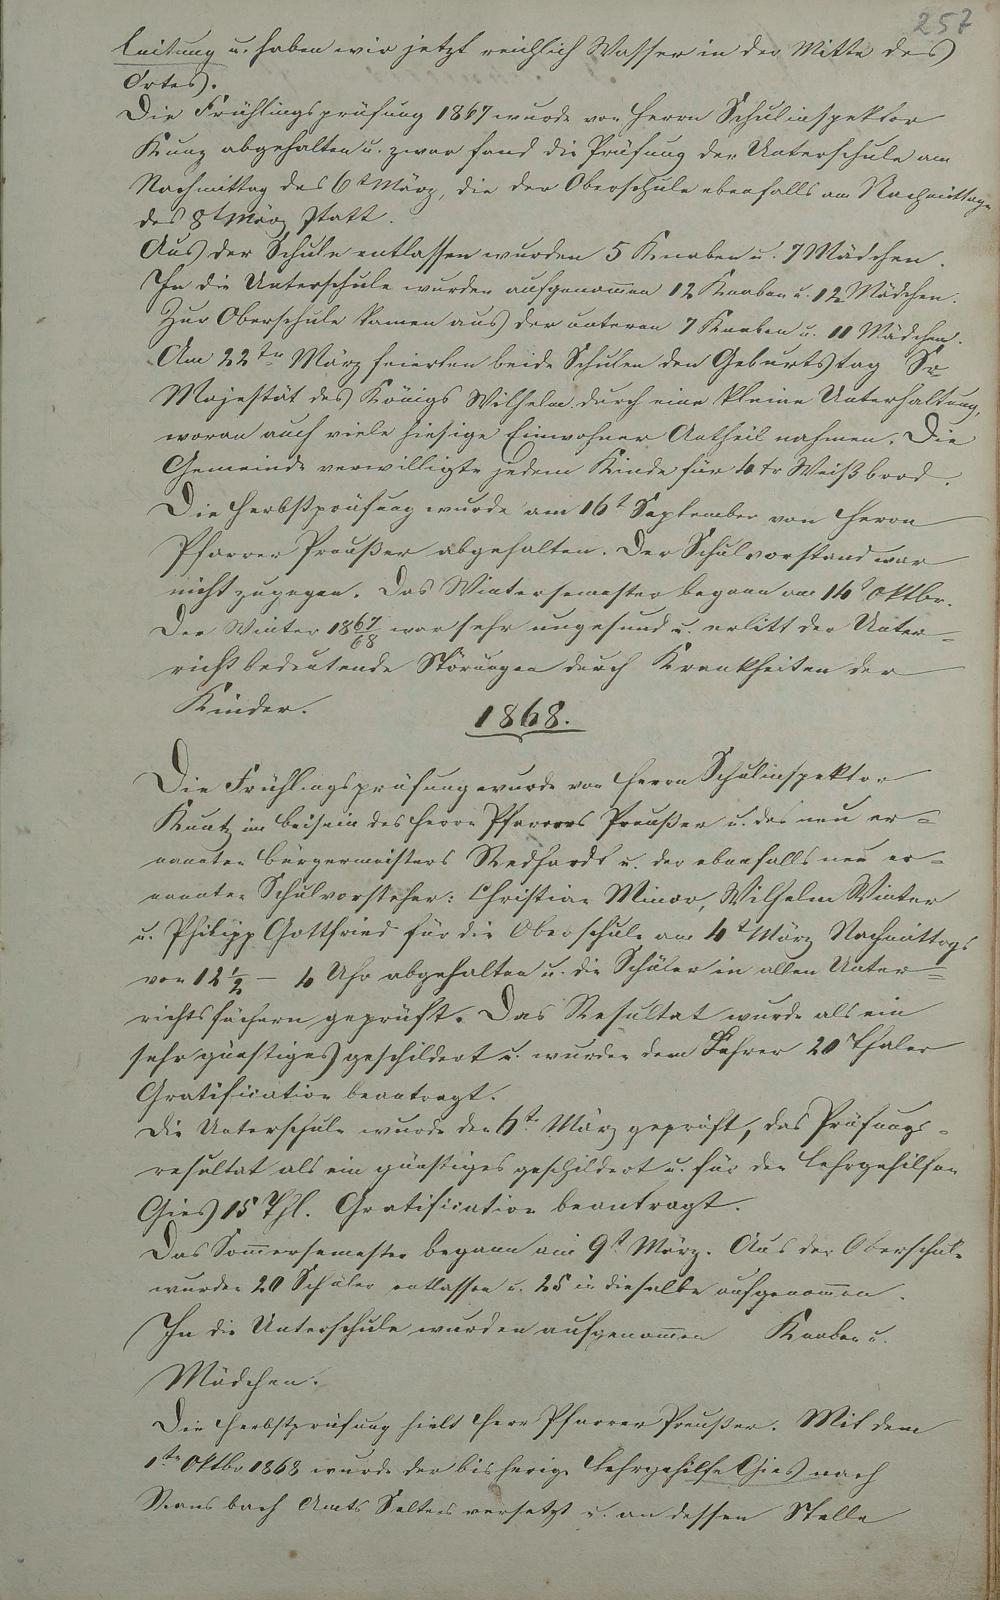 257
leitung u. haben wir jetzt reichlich Wasser in der Mitte des
Ortes.
Die Frühlingsprüfung 1867 wurde von Herrn Schulinspektor
Kunz abgehalten u. zwar fand die Prüfung der Unterschule am
Nachmittag des 6t März, die der Oberschule ebenfalls am Nachmittage
des 8t März statt.
Aus der Schule entlassen wurden 5 Knaben u. 7 Mädchen.
In die Unterschule wurden aufgenommen 12 Knaben u. 12 Mädchen.
Zur Oberschule kamen aus der unteren 7 Knaben u. 11 Mädchen.
Am 22ten März feierten beide Schulen den Geburtstag Sr
Majestät des Königs Wilhelm durch eine kleine Unterhaltung,
woran auch viele hiesige Einwohner Antheil nahmen. Die
Gemeinde verwilligte jedem Kinde für 4 tr Weißbrod.
Die Herbstprüfung wurde am 16t September von Herrn
Pfarrer Preußer abgehalten. Der Schulvorstand war
nicht zugegen. Das Wintersemester begann am 14t Oktbr.
Der Winter 1867/68 war sehr ungesund u. erlitt der Unter-
richt bedeutende Störungen durch Krankheiten der
Kinder.
1868.
Die Frühlingsprüfung wurde von Herrn Schulinspektor
Kuntz im Beisein des Herrn Pfarrers Preußer u. des neu er-
nannten Bürgermeisters Redhardt u. der ebenfalls neu er-
nannten Schulvorsteher: Christian Minor, Wilhelm Winter
u. Philipp Gottfried für die Oberschule am 4t März Nachmittags
von 12 1/2 - 4 Uhr abgehalten u. die Schüler in allen Unter-
richtsfächern geprüft. Das Resultat wurde als ein
sehr günstiges geschildert u. wurden dem Lehrer 20 Thaler
Gratification beantragt.
Die Unterschule wurde den 6ten März geprüft, das Prüfungs-
resultat als ein günstiges geschildert u. für den Lehrgehilfen
Gies 15 Thl. Gratification beantragt.
Das Sommersemester begann am 9t März. Aus der Oberschule
wurden 20 Schüler entlassen u. 25 in dieselbe aufgenommen.
In die Unterschule wurden aufgenommen Knaben u.
Mädchen.
Die Herbstprüfung hielt Herr Pfarrer Preußer. Mit dem
1ten Oktbr 1868 wurde der bisherige Lehrgehilfe Gies nach
Ransbach Amts Selters versetzt u. an dessen Stelle